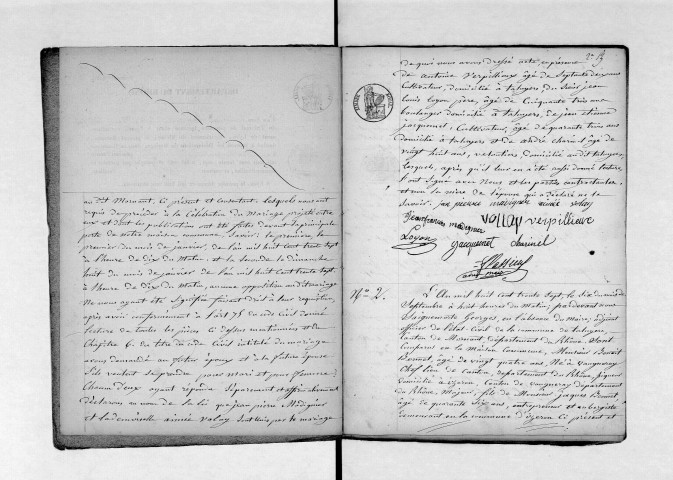 au dit Mornant, ci présent et consentant lesquels nous ont
requis de procéder à la Célébration du Mariage projetté entre
eux et dont les publication ont été faites devant la principale
porte de notre maison commune, Savoir: la première, le
premier du mois de janvier, de l'an mil huit cent trente sept
à l'heure de Dix du Matin; et la seconde le dimanche
huit du mois de janvier de l'an mil huit cent trente sept
à l'heure de Dix du Matin, aucune opposition au dit mariage
Ne nous ayant été signifiée faisant droit à leur requisition,
après avoir conformément à l'art 75 du code Civil donné
lecture de toutes les pièces ci dessus mentionnées et du
Chapitre 6. du titre du code Civil intitulé du mariage
avons demandé au futur époux et à la future épouse
s'ils veulent se prendre pour Mari et pour femme:
Chacun d'eux ayant répondu Séparément et affirmativement
déclarons au nom de la loi que jean pierre Madignier
et la demoiselle aimée Valoy Sont unis par le mariage
de quoi nous avons dressé acte, en présence
de antoine Verpillieux âgé de Septante deux ans
Cultivateur, domicilié à taluyers, du Sieur jean
louis Loyon père, âgé de Cinquante trois ans
boulanger domicilié à taluyers, de jean étienne
jacquemet, Cultivateur, âgé de quarante trois ans
domicilié à taluyers et de andré charinel âgé de
Vingt huit ans, domicilié au dit taluyers,
lesquels, après qu'il leur en a été aussi donné lecture,
l'ont signé avec Nous et les parties contractantes,
et non la mère de l'épouse qui a déclaré ne le
savoir. jean pierre madignier aimée valoy
Jean françois madignier Valloy verpillieux
Loyon Jacquemet Charinel
No 2. L'An mil huit cent trente Sept, le Six du mois de
Septembre à huit heures du Matin, par devant nous
Georges, en l'absence du Maire, adjoint
officier de l'état-Civil de la commune de taluyers,
Canton de Mornant Département du Rhône. Sont
Comparus en la Maison Commune, Monsieur Benoit
âgé de vingt quatre ans Né à Vaugneray
Chef lieu de Canton, département du Rhône,
domicilié à yzeron, Canton de Vaugneray département
du Rhône, Majeur, fils de Monsieur jacques
âgé de quarante Six ans, entrepreneur et aubergiste
demeurant en la commune d'yzeron ci présent et